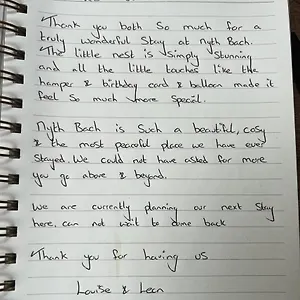 Thank you both So much for a
truly wonderful Stay at Nyth Bach.
The little nest is Simply Stunning
and all the little touches like the
hamper & birthday card & balloon made it
feel So much more Special.
Nyth Bach is Such a beautiful, cosy
& the most peaceful place we have ever
Stayed. We could not have asked for more
you go above & beyond.
We are currently planning our next Stay
here, can not wait to come back
Thank you for having us
Louise & Leon